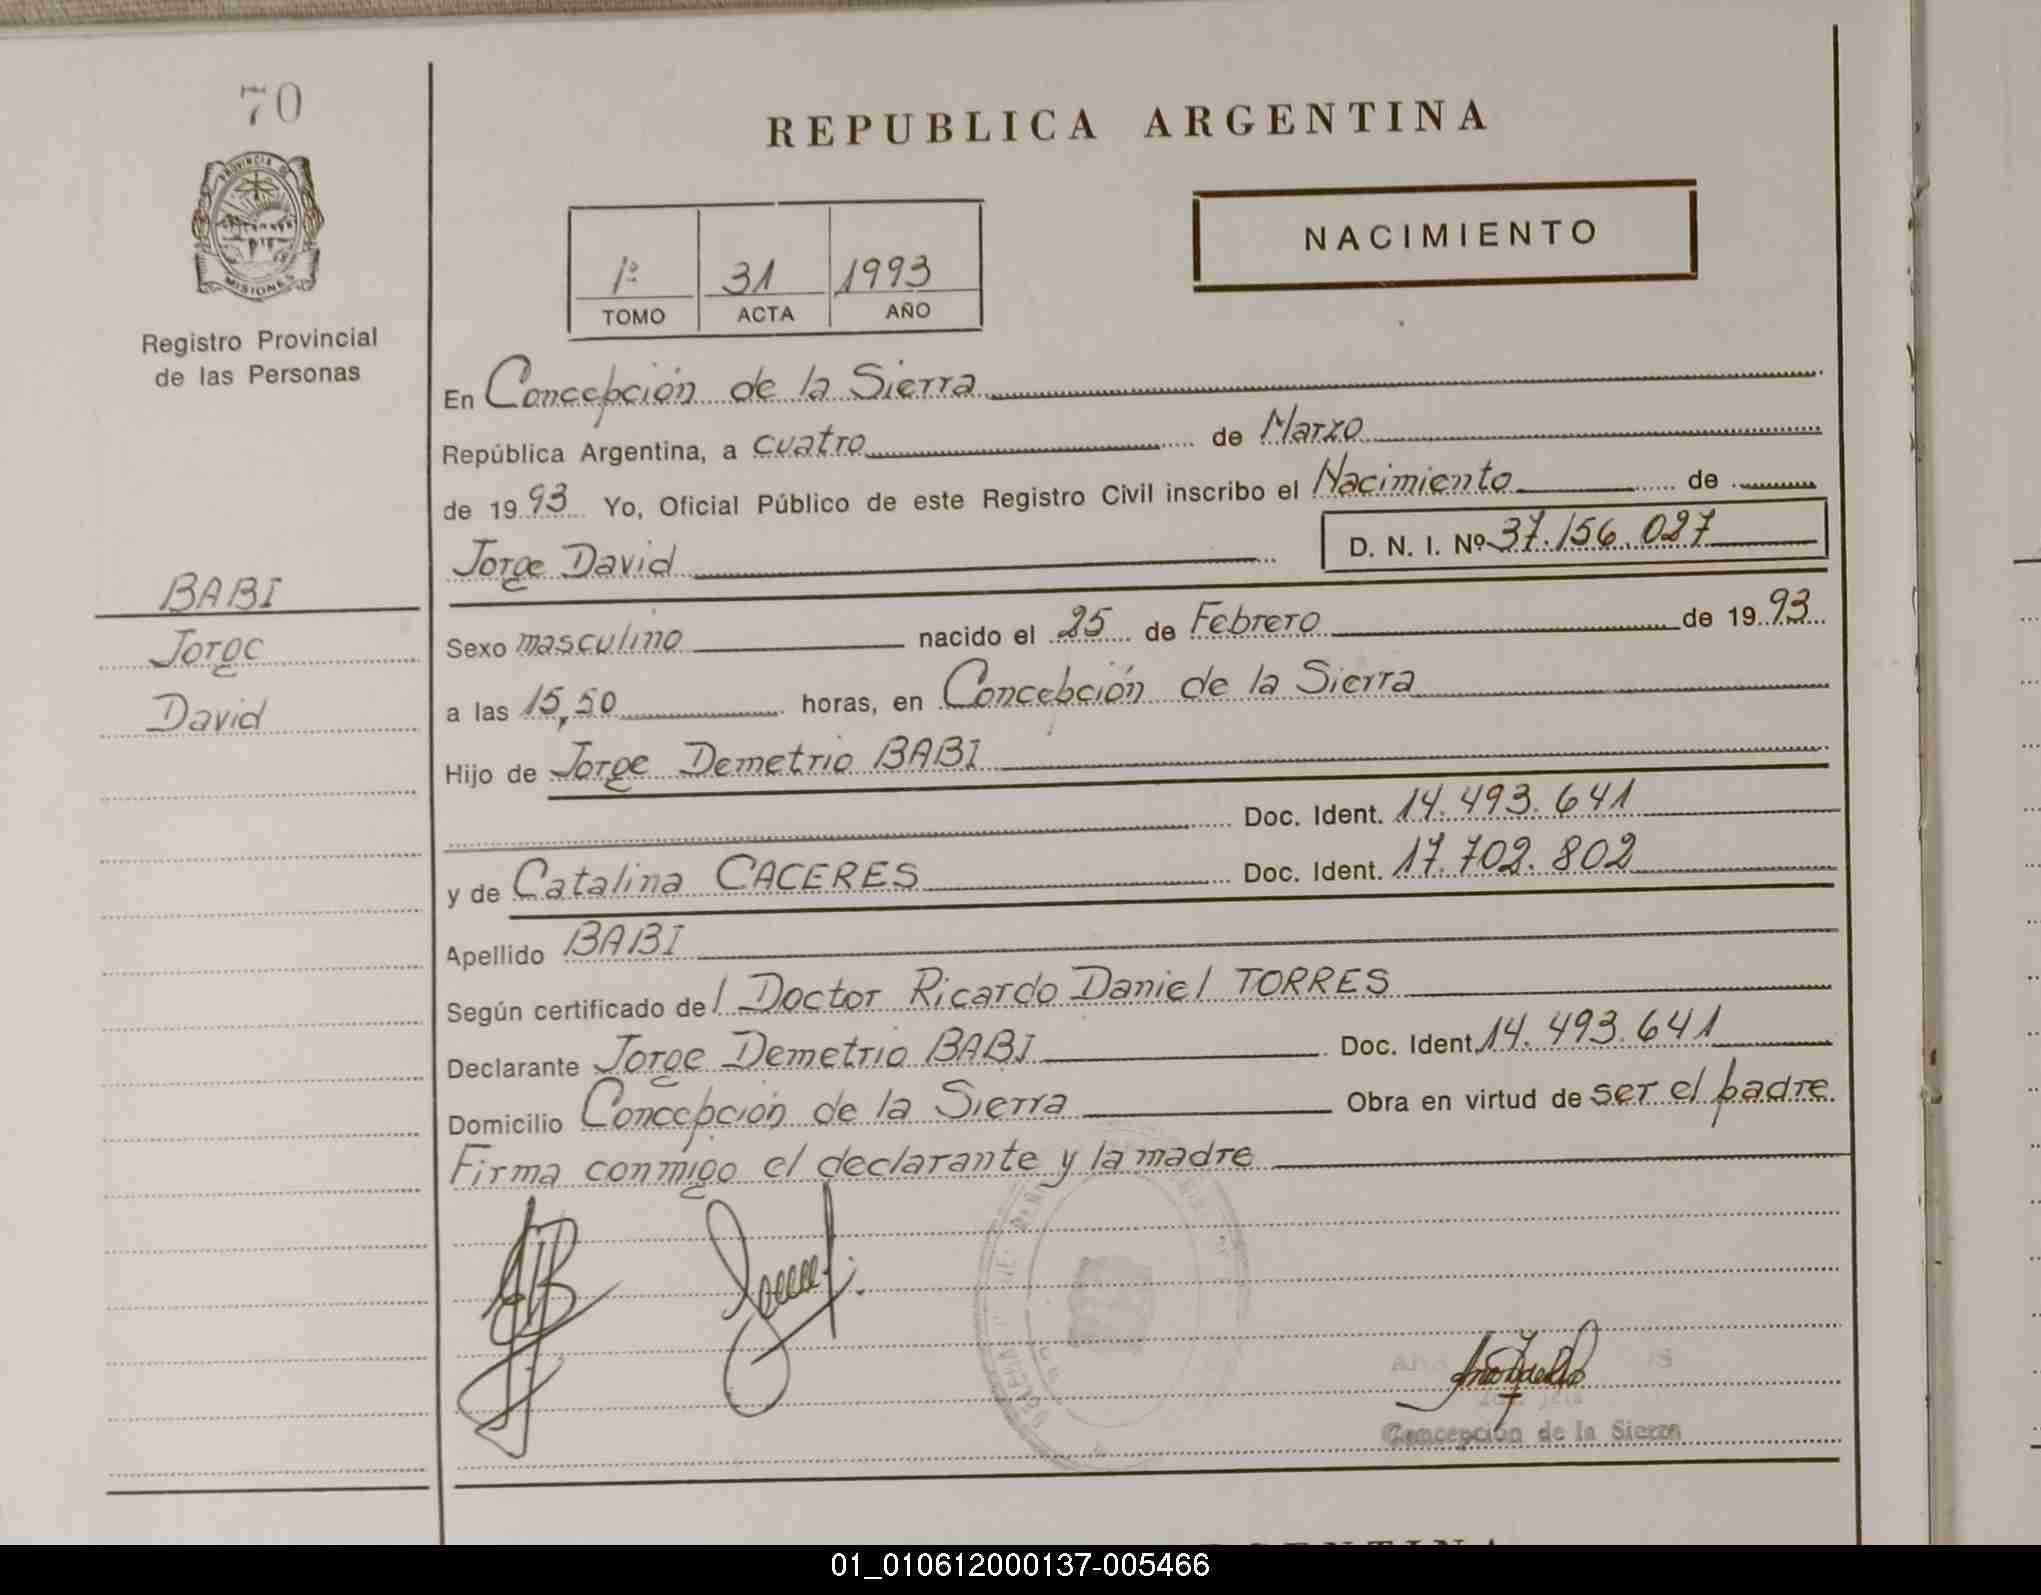 70
PROVINCIA DE
MISIONES
Registro Provincial
de las Personas
BABI
Jorge
David
REPUBLICA ARGENTINA
NACIMIENTO
1º 31 1993
TOMO ACTA AÑO
En Concepción de la Sierra
República Argentina, a cuatro de Marzo
de 1993 Yo, Oficial Público de este Registro Civil inscribo el Nacimiento de
Jorge David D. N. I. Nº 37.156.027
Sexo masculino nacido el 25 de Febrero de 1993
a las 15,50 horas, en Concepción de la Sierra
Hijo de Jorge Demetrio BABI
Doc. Ident. 14.493.641
y de Catalina CACERES Doc. Ident. 17.702.802
Apellido BABI
Según certificado del Doctor Ricardo Daniel TORRES
Declarante Jorge Demetrio BABI Doc. Ident. 14.493.641
Domicilio Concepción de la Sierra Obra en virtud de ser el padre.
Firma conmigo el declarante y la madre
Concepción de la Sierra
01_010612000137-005466